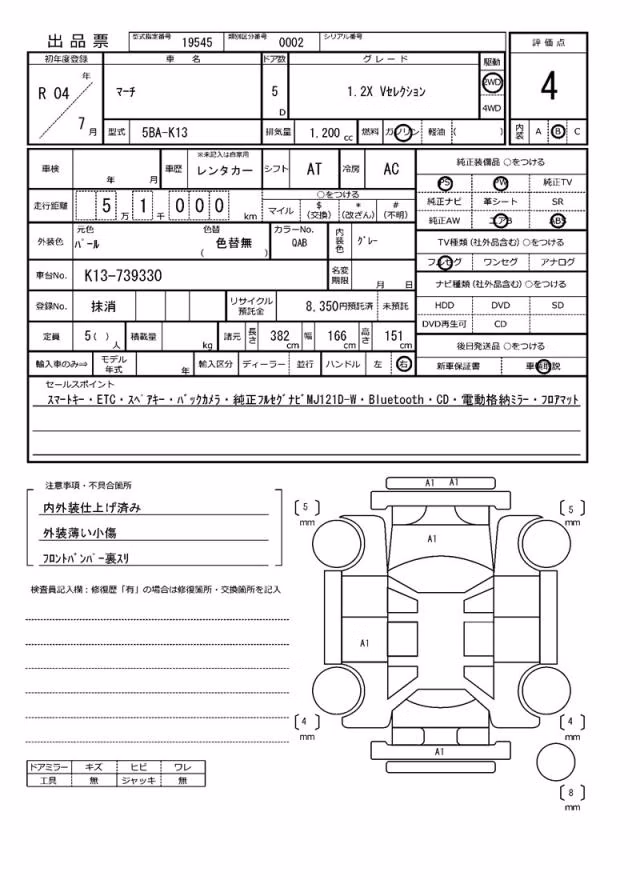 出品票 型式指定番号 19545 類別区分番号 0002 シリアル番号
評価点
4
内装 A B C
初年度登録 車名 ドア数 グレード 駆動
R 04 年 7 月 マーチ 5 D 1.2X Vセレクション 2WD 4WD
型式 5BA-K13 排気量 1.200 cc 燃料 ガソリン 軽油 ( )
車検 年 月 車歴 ※未記入は自家用 レンタカー シフト AT 冷房 AC
走行距離 5 万 1 千 0 0 0 km ○をつける
マイル $ (交換) * (改ざん) # (不明)
外装色 元色 パール 色替 色替無 ( ) カラーNo. QAB 内装色 グレー
車台No. K13-739330 名変期限 月 日
登録No. 抹消 リサイクル預託金 8.350円預託済 未預託
定員 5( ) 人 積載量 kg 諸元 長さ 382 cm 幅 166 cm 高さ 151 cm
輸入車のみ⇒ モデル年式 年 輸入区分 ディーラー 並行 ハンドル 左 右
純正装備品 ○をつける
PS PW 純正TV
純正ナビ 革シート SR
純正AW エアB ABS
TV種類(社外品含む) ○をつける
フルセグ ワンセグ アナログ
ナビ種類(社外品含む) ○をつける
HDD DVD SD
DVD再生可 CD
後日発送品 ○をつける
新車保証書 車輌取説
セールスポイント
スマートキー・ETC・スペアキー・バックカメラ・純正フルセグナビMJ121D-W・Bluetooth・CD・電動格納ミラー・フロアマット
注意事項・不具合箇所
内外装仕上げ済み
外装薄い小傷
フロントバンパー裏スリ
検査員記入欄：修復歴「有」の場合は修復箇所・交換箇所を記入
ドアミラー キズ ヒビ ワレ
工具 無 ジャッキ 無
A1 A1
5 mm
5 mm
A1
A1
4 mm
4 mm
A1
8 mm